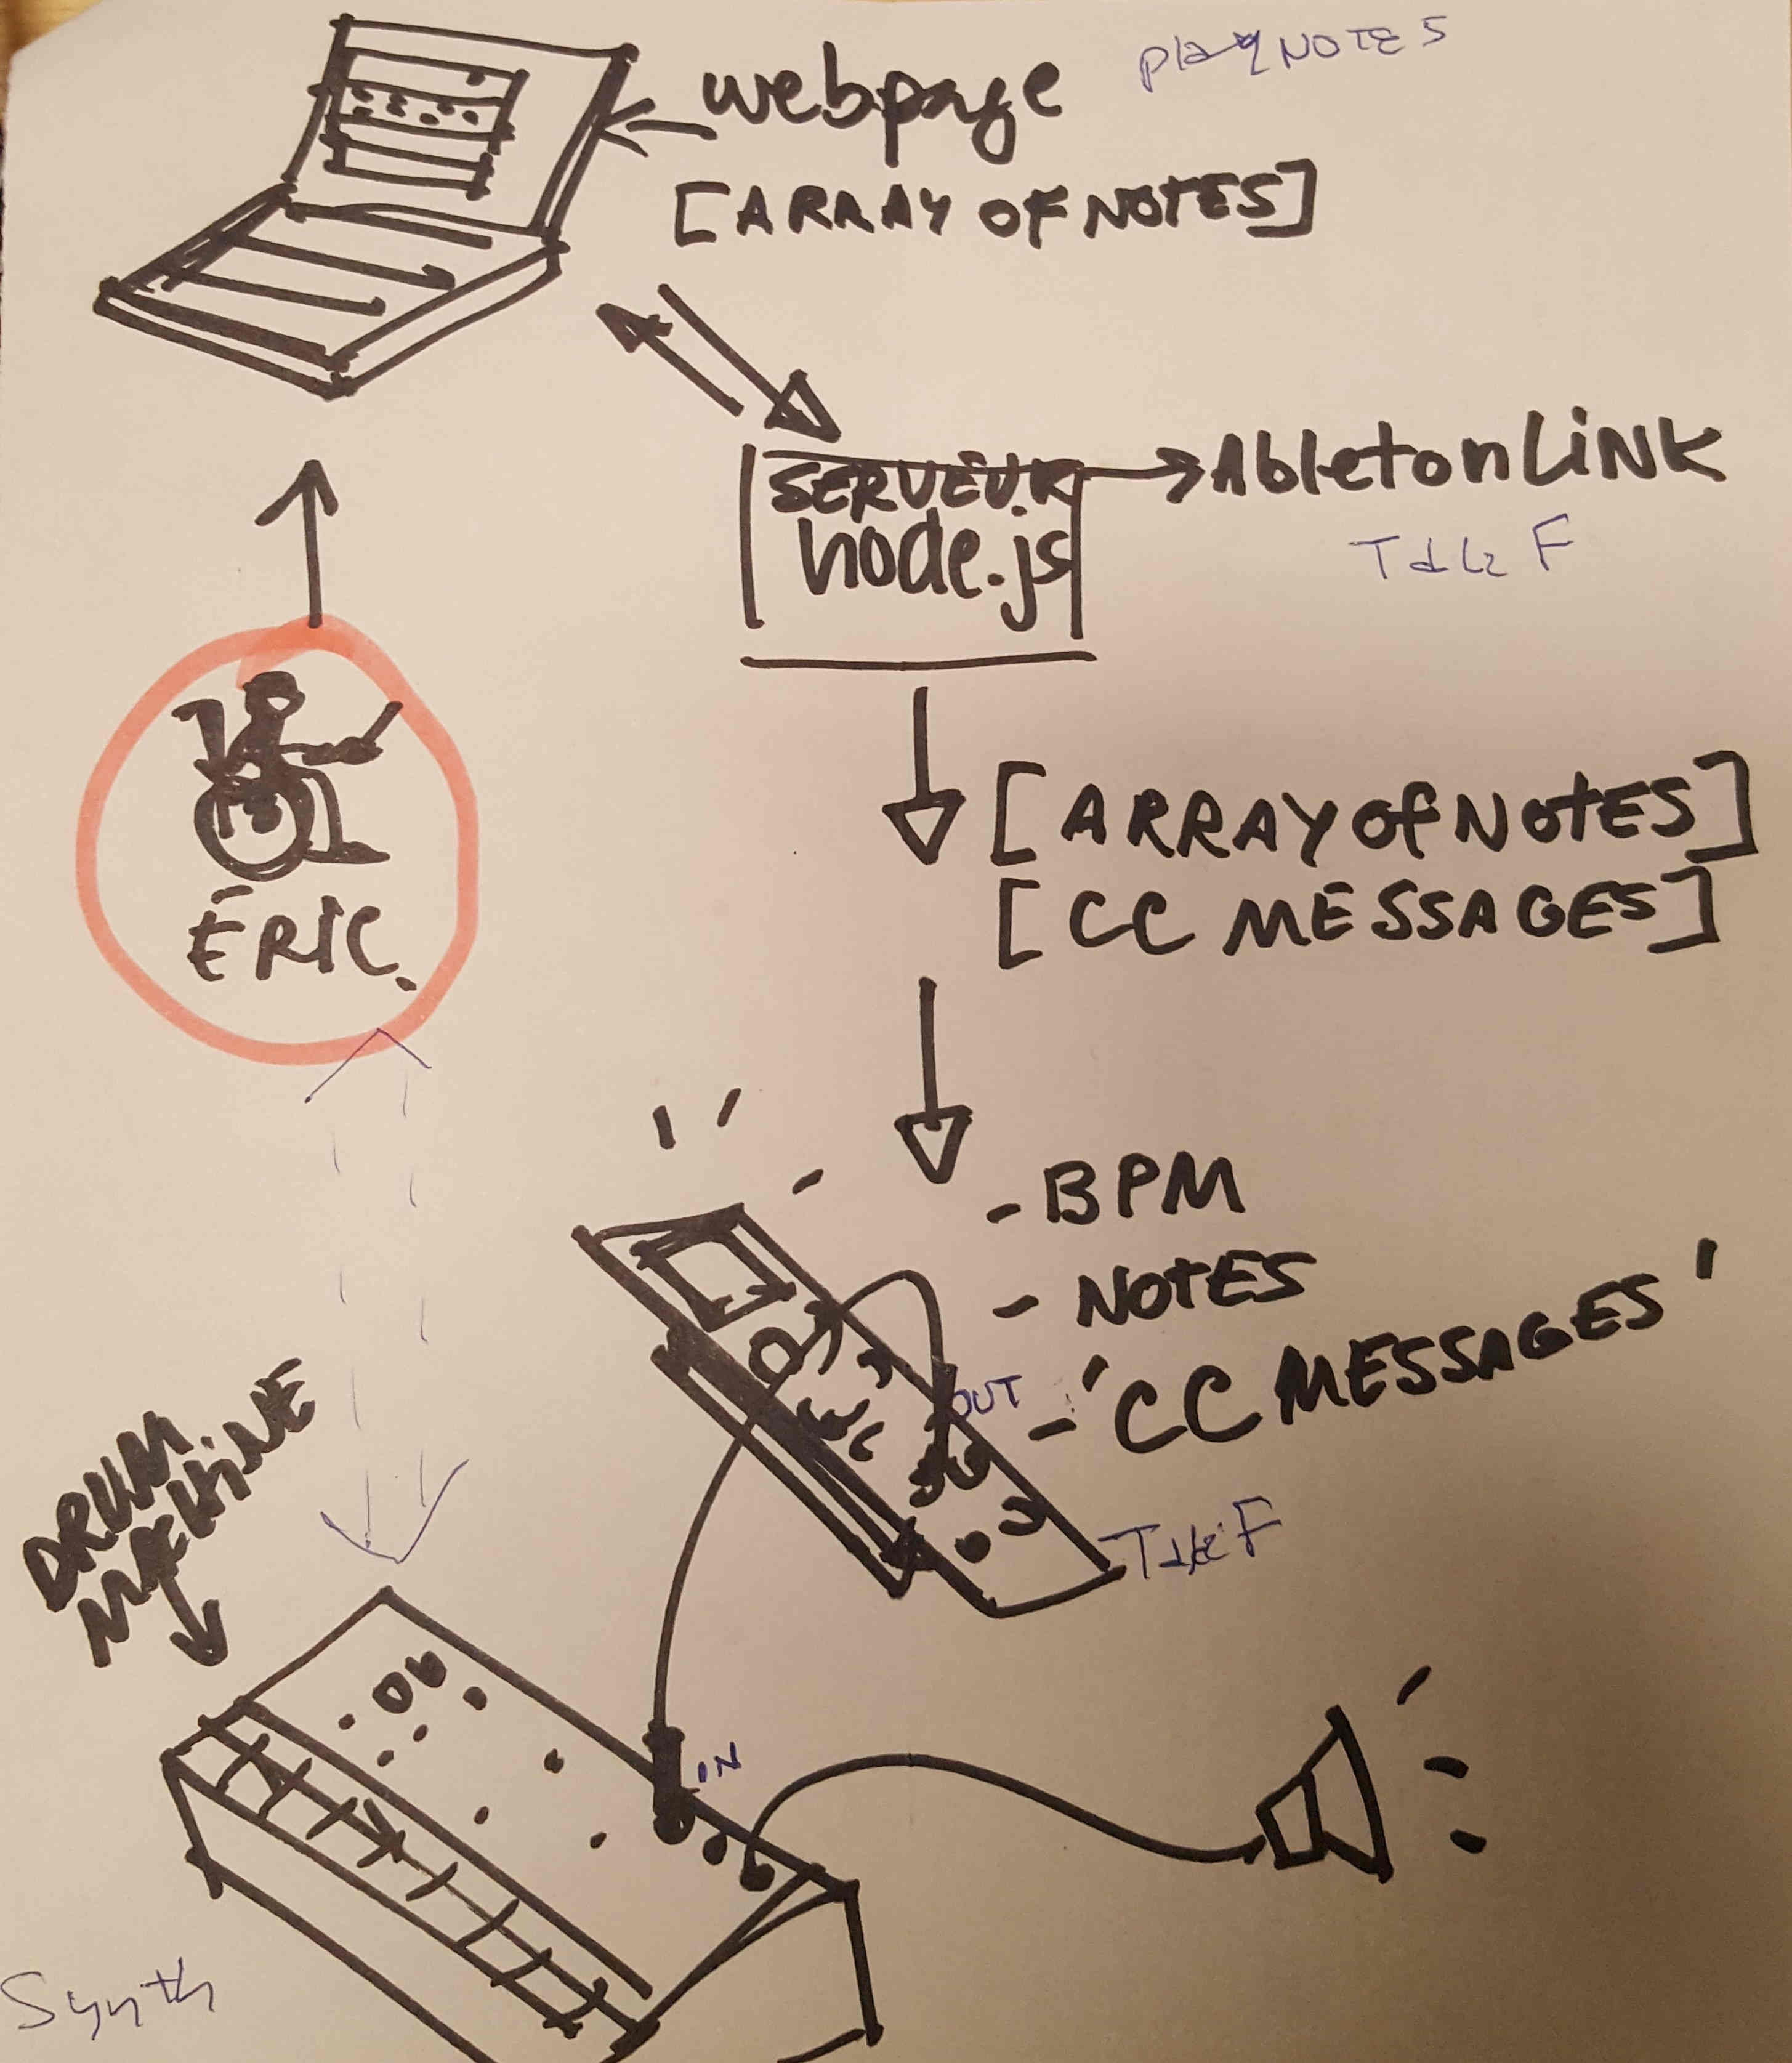 webpage
play NOTES
[ARRAY OF NOTES]
SERVEUR
node.js
AbletonLiNK
ÉRIC.
[ARRAY of NOtES]
[CC MESSAGES]
- BPM
- NOtES
OUT
- 'CC MESSAGES'
DRUM
MACHiNE
IN
Synth